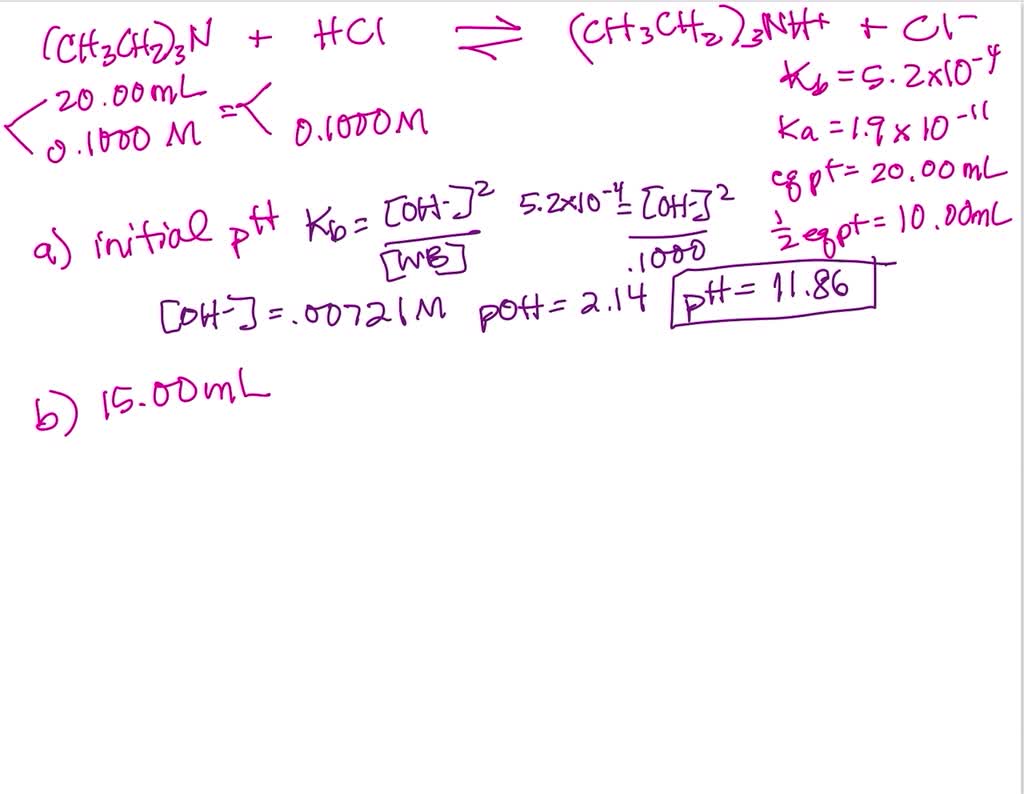 (CH3CH2)3N + HCl ⇌ (CH3CH2)3NH+ + Cl-
20.00mL
0.1000 M = 0.1000M
Kb = 5.2x10-4
Ka = 1.9 x 10-11
eq pt = 20.00mL
1/2 eq pt = 10.00mL
a) initial pH Kb = [OH-]2 / [WB] 5.2x10-4 = [OH-]2 / .1000
[OH-] = .00721M pOH = 2.14 pH = 11.86
b) 15.00mL